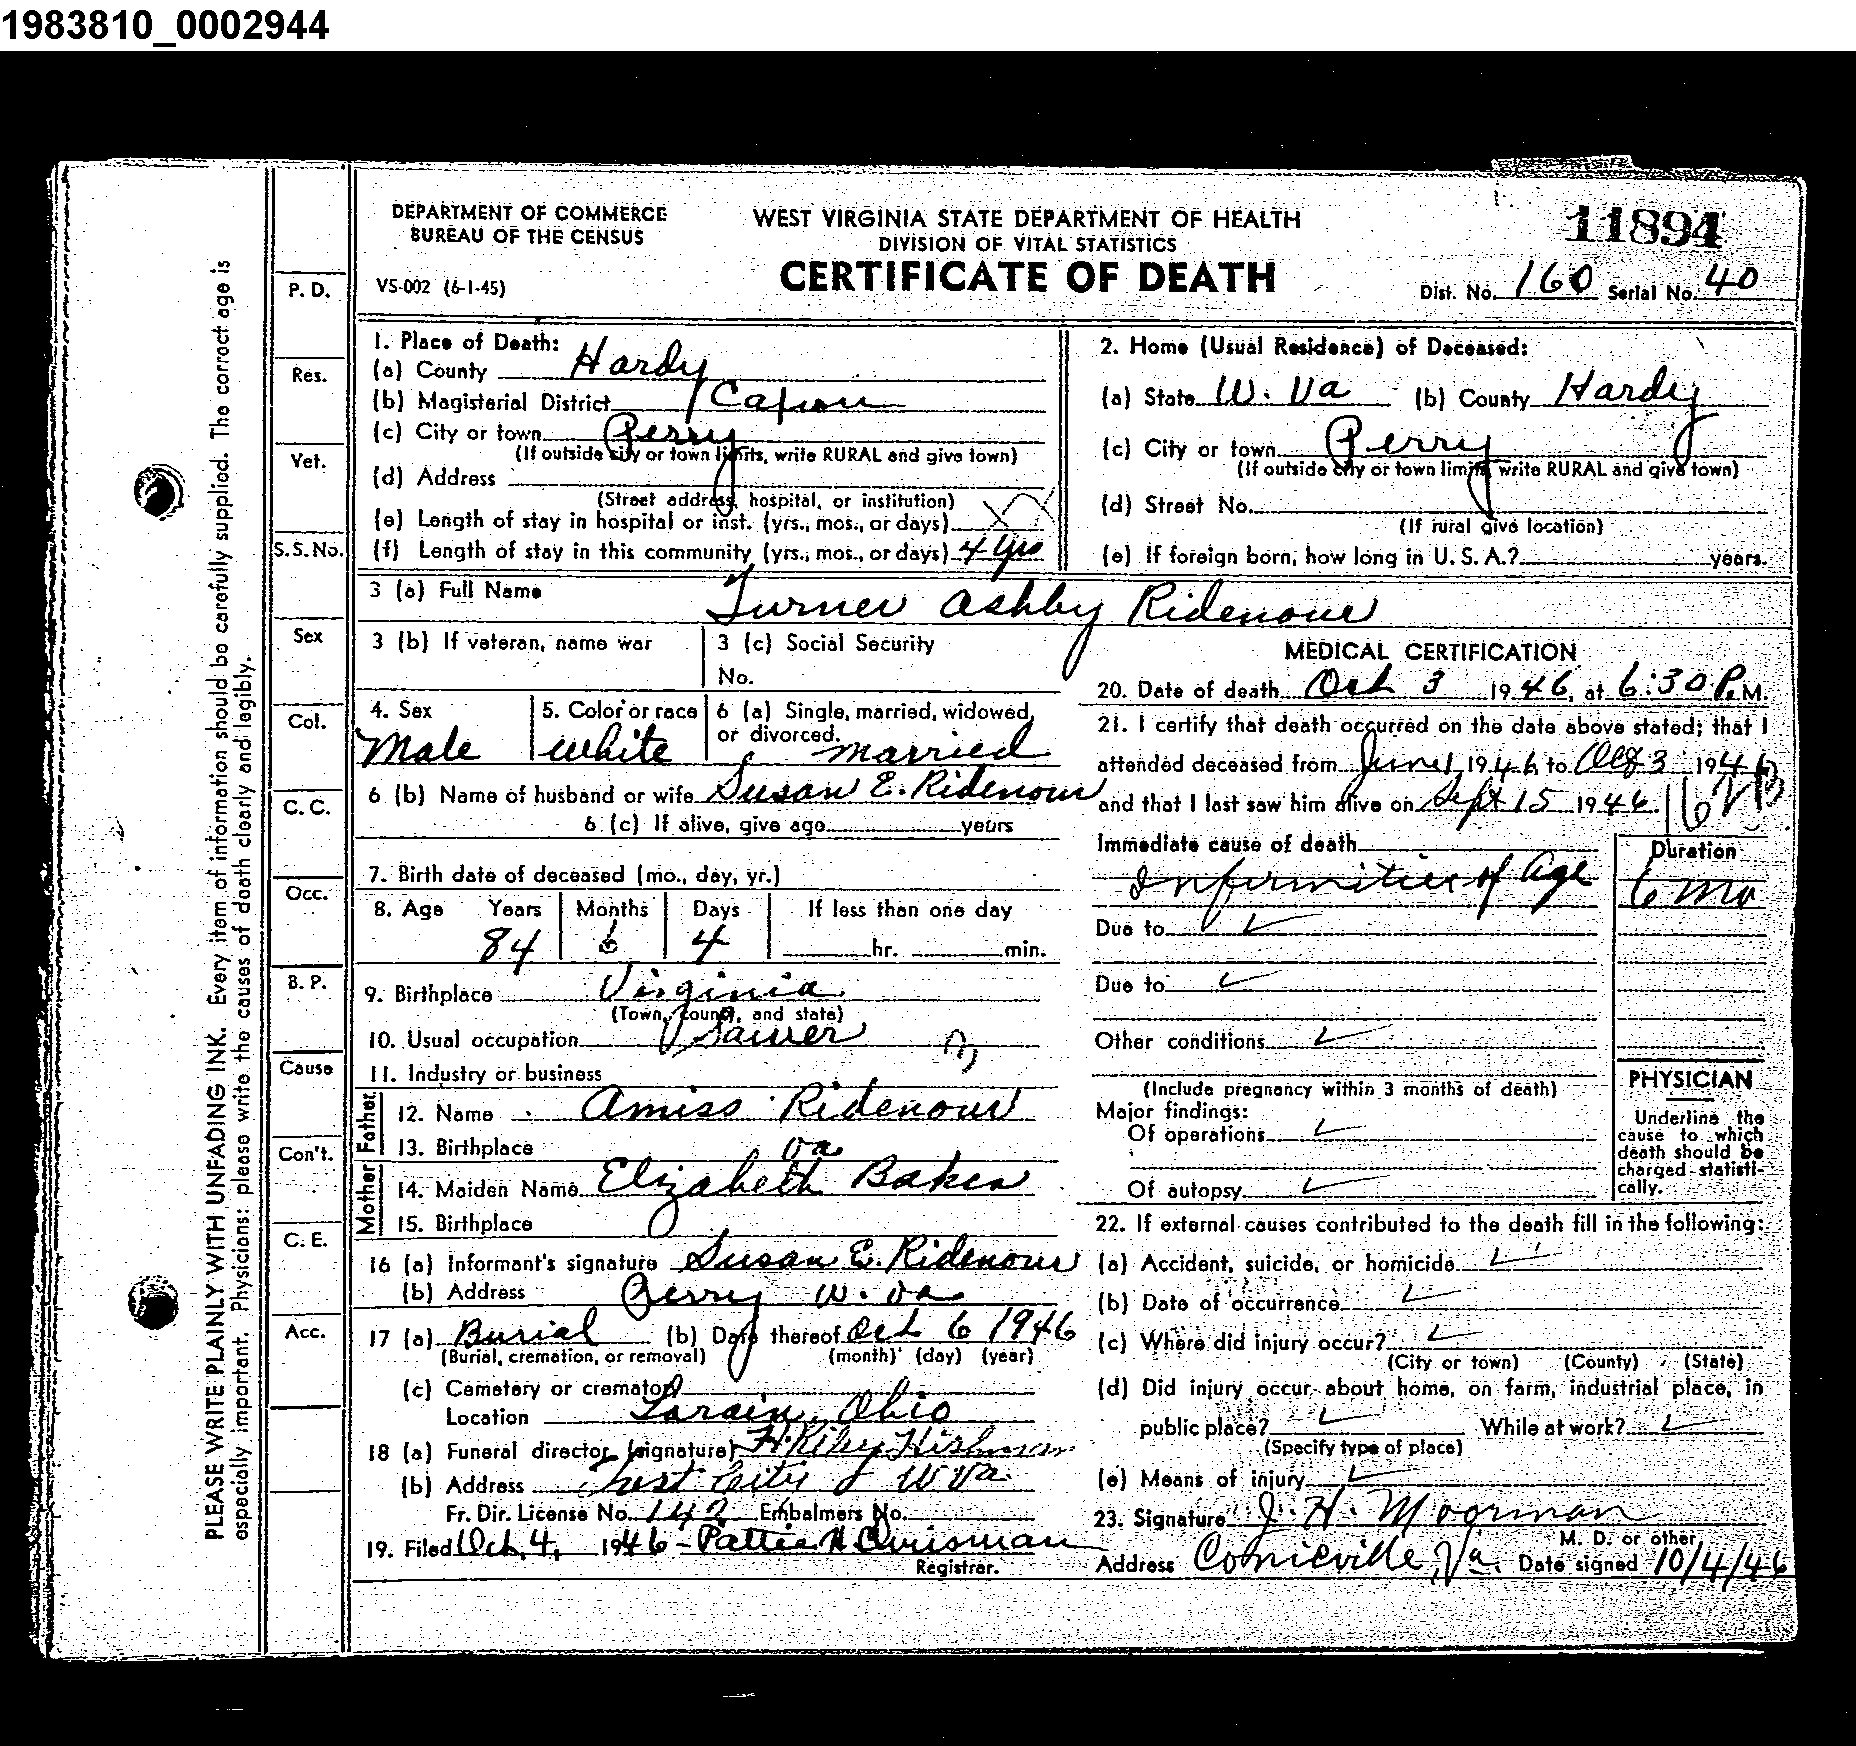 1983810_0002944
DEPARTMENT OF COMMERCE
BUREAU OF THE CENSUS
VS-002 (6-1-45)
WEST VIRGINIA STATE DEPARTMENT OF HEALTH
DIVISION OF VITAL STATISTICS
CERTIFICATE OF DEATH
11894
Dist. No. 160 Serial No. 40
PLEASE WRITE PLAINLY WITH UNFADING INK. Every item of information should be carefully supplied. The correct age is
especially important. Physicians: please write the causes of death clearly and legibly.
P. D.
Res.
Vet.
S.S. No.
Sex
Col.
C. C.
Occ.
B. P.
Cause
Con't.
C. E.
Acc.
1. Place of Death:
(a) County Hardy
(b) Magisterial District Capon
(c) City or town Perry
(If outside city or town limits, write RURAL and give town)
(d) Address
(Street address, hospital, or institution)
(e) Length of stay in hospital or inst. (yrs., mos., or days)
(f) Length of stay in this community (yrs., mos., or days) 4 yrs
2. Home (Usual Residence) of Deceased:
(a) State W. Va (b) County Hardy
(c) City or town Perry
(If outside city or town limits, write RURAL and give town)
(d) Street No.
(If rural give location)
(e) If foreign born, how long in U. S. A.? years.
3 (a) Full Name Turner Ashby Ridenour
3 (b) If veteran, name war
3 (c) Social Security
No.
4. Sex
Male
5. Color or race
White
6 (a) Single, married, widowed,
or divorced. married
6 (b) Name of husband or wife Susan E. Ridenour
6 (c) If alive, give age years
7. Birth date of deceased (mo., day, yr.)
8. Age Years Months Days If less than one day
84 6 4 hr. min.
9. Birthplace Virginia
(Town, county, and state)
10. Usual occupation Sawer
11. Industry or business
Father
12. Name Amiss Ridenour
13. Birthplace Va
Mother
14. Maiden Name Elizabeth Baker
15. Birthplace
16 (a) Informant's signature Susan E. Ridenour
(b) Address Perry W. Va
17 (a) Burial (b) Date thereof Oct 6 1946
(Burial, cremation, or removal) (month) (day) (year)
(c) Cemetery or crematory
Location Lorain, Ohio
18 (a) Funeral director (signature) H. Riley
(b) Address Lost City W Va.
Fr. Dir. License No. 142 Embalmers No.
19. Filed Oct. 4, 1946 - Pattie H Chrisman
Registrar.
MEDICAL CERTIFICATION
20. Date of death Oct 3 1946, at 6:30 P.M.
21. I certify that death occurred on the date above stated; that I
attended deceased from June 1, 1946 to Oct 3 1946
and that I last saw him alive on Sept 15 1946.
Immediate cause of death
Infirmities of Age
Duration
6 mo
Due to
Due to
Other conditions
(Include pregnancy within 3 months of death)
Major findings:
Of operations
Of autopsy
PHYSICIAN
Underline the
cause to which
death should be
charged statisti-
cally.
22. If external causes contributed to the death fill in the following:
(a) Accident, suicide, or homicide
(b) Date of occurrence
(c) Where did injury occur?
(City or town) (County) (State)
(d) Did injury occur about home, on farm, industrial place, in
public place? While at work?
(Specify type of place)
(e) Means of injury
23. Signature J. H. Moorman
M. D. or other
Address Va. Date signed 10/4/46